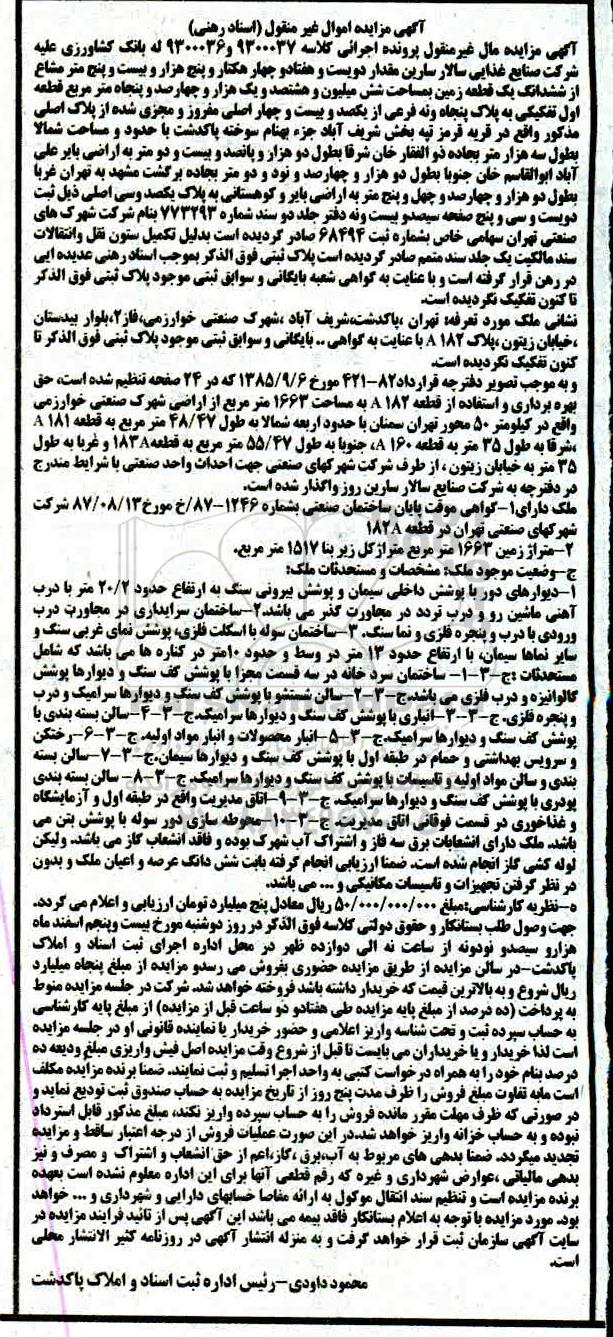 آگهی مزایده اموال غیر منقول (اسناد رهنی)
آگهی مزایده مال غیرمنقول پرونده اجرائی کلاسه ۹۳۰۰۰۳۷ و۹۳۰۰۰۳۶ له بانک کشاورزی علیه
شرکت صنایع غذایی سالار سارین مقدار دویست و هفتادو چهار هکتار و پنج هزار و بیست و پنج متر مشاع
از ششدانگ یک قطعه زمین بمساحت شش میلیون و هشتصد و یک هزار و چهارصد و پنجاه متر مربع قطعه
اول تفکیکی به پلاک پنجاه ونه فرعی از یکصد و بیست و چهار اصلی مفروز و مجزی شده از پلاک اصلی
مذکور واقع در قریه قرمز تپه بخش شریف آباد جزء بهنام سوخته پاکدشت با حدود و مساحت شمالا
بطول سه هزار متر بجاده ذو الفقار خان شرقا بطول دو هزار و پانصد و بیست و دو متر به اراضی بایر علی
آباد ابوالقاسم خان جنوبا بطول دو هزار و چهارصد و نود و دو متر بجاده برگشت مشهد به تهران غربا
بطول دو هزار و چهارصد و چهل و پنج متر به اراضی بایر و کوهستانی به پلاک یکصد وسی اصلی ذیل ثبت
دویست و سی و پنج صفحه سیصدو بیست ونه دفتر جلد دو سند شماره ۷۷۳۲۹۳ بنام شرکت شهرک های
صنعتی تهران سهامی خاص بشماره ثبت ۶۸۴۹۴ صادر گردیده است بدلیل تکمیل ستون نقل وانتقالات
سند مالکیت یک جلد سند متمم صادر گردیده است پلاک ثبتی فوق الذکر بموجب اسناد رهنی عدیده ایی
در رهن قرار گرفته است و با عنایت به گواهی شعبه بایگانی و سوابق ثبتی موجود پلاک ثبتی فوق الذکر
تا کنون تفکیک نگردیده است.
نشانی ملک مورد تعرفه: تهران ،پاکدشت،شریف آباد ،شهرک صنعتی خوارزمی،فاز۲،بلوار بیدستان
،خیابان زیتون ،پلاک A ۱۸۲ با عنایت به گواهی .. بایگانی و سوابق ثبتی موجود پلاک ثبتی فوق الذکر تا
کنون تفکیک نگردیده است.
و به موجب تصویر دفترچه قرارداد۸۲-۴۲۱ مورخ ۱۳۸۵/۹/۶ که در ۲۴ صفحه تنظیم شده است، حق
بهره برداری و استفاده از قطعه A ۱۸۲ به مساحت ۱۶۶۳ متر مربع از اراضی شهرک صنعتی خوارزمی
واقع در کیلومتر ۵۰ محور تهران سمنان با حدود اربعه شمالا به طول ۴۸/۴۷ متر مربع به قطعه A ۱۸۱
،شرقا به طول ۳۵ متر به قطعه A ۱۶۰، جنوبا به طول ۵۵/۴۷ متر مربع به قطعه۱۸۳A و غربا به طول
۳۵ متر به خیابان زیتون ، از طرف شرکت شهرکهای صنعتی جهت احداث واحد صنعتی با شرایط مندرج
در دفترچه به شرکت صنایع سالار سارین روز واگذار شده است.
ملک دارای۱-گواهی موقت پایان ساختمان صنعتی بشماره ۱۲۴۶-۸۷/خ مورخ۸۷/۰۸/۱۳ شرکت
شهرکهای صنعتی تهران در قطعه ۱۸۲A
۲-متراژ زمین ۱۶۶۳ متر مربع متراژ کل زیر بنا ۱۵۱۷ متر مربع.
ج-وضعیت موجود ملک: مشخصات و مستحدثات ملک:
۱-دیوارهای دور با پوشش داخلی سیمان و پوشش بیرونی سنگ به ارتفاع حدود ۲۰/۲ متر با درب
آهنی ماشین رو و درب تردد در مجاورت گذر می باشد.۲-ساختمان سرایداری در مجاورت درب
ورودی با درب و پنجره فلزی و نما سنگ. ۳-ساختمان سوله با اسکلت فلزی، پوشش نمای غربی سنگ و
سایر نماها سیمان، با ارتفاع حدود ۱۳ متر در وسط و حدود ۱۰متر در کناره ها می باشد که شامل
مستحدثات :ج-۳-۱- ساختمان سرد خانه در سه قسمت مجزا با پوشش کف سنگ و دیوارها پوشش
گالوانیزه و درب فلزی می باشد.ج-۳-۲-سالن شستشو با پوشش کف سنگ و دیوارها سرامیک و درب
و پنجره فلزی. ج-۳-۳-انباری با پوشش کف سنگ و دیوارها سرامیک.ج-۳-۴-سالن بسته بندی با
پوشش کف سنگ و دیوارها سرامیک.ج-۳-۵-انبار محصولات و انبار مواد اولیه. ج-۳-۶-رختکن
و سرویس بهداشتی و حمام در طبقه اول با پوشش کف سنگ و دیوارها سیمان.ج-۳-۷-سالن بسته
بندی و سالن مواد اولیه و تاسیسات با پوشش کف سنگ و دیوارها سرامیک. ج-۳-۸- سالن بسته بندی
پودری با پوشش کف سنگ و دیوارها سرامیک. ج-۳-۹-اتاق مدیریت واقع در طبقه اول و آزمایشگاه
و غذاخوری در قسمت فوقانی اتاق مدیریت. ج-۳-۱۰-محوطه سازی دور سوله با پوشش بتن می
باشد. ملک دارای انشعابات برق سه فاز و اشتراک آب شهرک بوده و فاقد انشعاب گاز می باشد. ولیکن
لوله کشی گاز انجام شده است. ضمنا ارزیابی انجام گرفته بابت شش دانگ عرصه و اعیان ملک و بدون
در نظر گرفتن تجهیزات و تاسیسات مکانیکی و ... می باشد.
ه-نظریه کارشناسی:مبلغ ۵۰/۰۰۰/۰۰۰/۰۰۰ ریال معادل پنج میلیارد تومان ارزیابی و اعلام می گردد.
جهت وصول طلب بستانکار و حقوق دولتی کلاسه فوق الذکر در روز دوشنبه مورخ بیست وپنجم اسفند ماه
هزارو سیصدو نودونه از ساعت نه الی دوازده ظهر در محل اداره اجرای ثبت اسناد و املاک
پاکدشت-در سالن مزایده از طریق مزایده حضوری بفروش می رسدو مزایده از مبلغ پنجاه میلیارد
ریال شروع و به بالاترین قیمت که خریدار داشته باشد فروخته خواهد شد. شرکت در جلسه مزایده منوط
به پرداخت (ده درصد از مبلغ پایه مزایده طی هفتادو دو ساعت قبل از مزایده) از مبلغ پایه کارشناسی
به حساب سپرده ثبت و تحت شناسه واریز اعلامی و حضور خریدار یا نماینده قانونی او در جلسه مزایده
است لذا خریدار و یا خریداران می بایست تا قبل از شروع وقت مزایده اصل فیش واریزی مبلغ ودیعه ده
درصد بنام خود را به همراه درخواست کتبی به واحد اجرا تسلیم و ثبت نمایند. ضمنا برنده مزایده مکلف
است مابه تفاوت مبلغ فروش را ظرف مدت پنج روز از تاریخ مزایده به حساب صندوق ثبت تودیع نماید و
در صورتی که ظرف مهلت مقرر مانده فروش را به حساب سپرده واریز نکند، مبلغ مذکور قابل استرداد
نبوده و به حساب خزانه واریز خواهد شد.در این صورت عملیات فروش از درجه اعتبار ساقط و مزایده
تجدید میگردد. ضمنا بدهی های مربوط به آب،برق ،گاز،اعم از حق انشعاب و اشتراک و مصرف و نیز
بدهی مالیاتی ،عوارض شهرداری و غیره که رقم قطعی آنها برای این اداره معلوم نشده است بعهده
برنده مزایده است و تنظیم سند انتقال موکول به ارائه مفاصا حسابهای دارایی و شهرداری و ... خواهد
بود. مورد مزایده با توجه به اعلام بستانکار فاقد بیمه می باشد این آگهی پس از تائید فرایند مزایده در
سایت آگهی سازمان ثبت قرار خواهد گرفت و به منزله انتشار آگهی در روزنامه کثیر الانتشار محلی
است.
محمود داودی-رئیس اداره ثبت اسناد و املاک پاکدشت